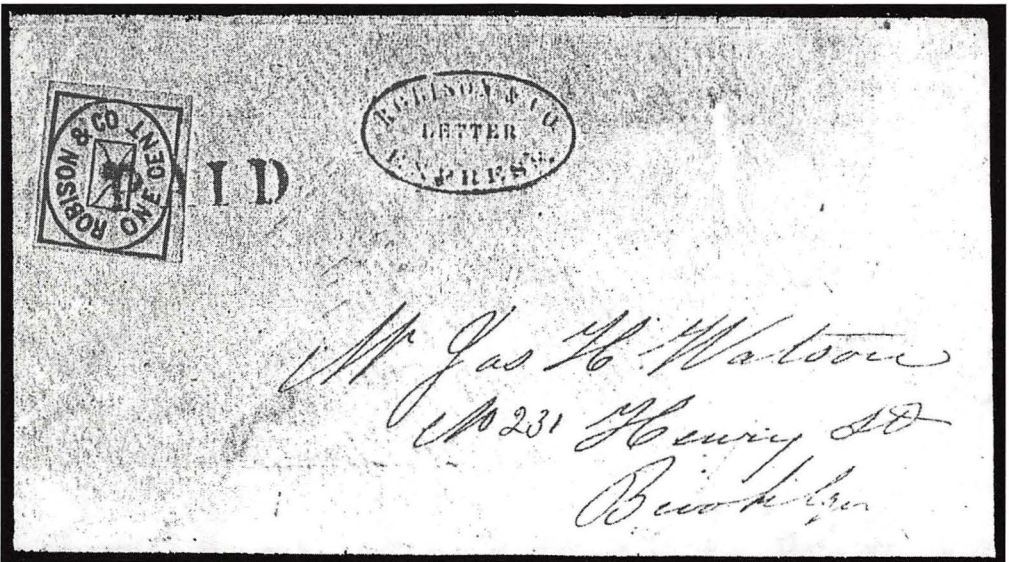 ROBISON & CO
ONE CENT
PAID
ROBISON & CO.
LETTER
EXPRESS.
Mr Jas. H. Watson
No 231 Henry St
Brooklyn